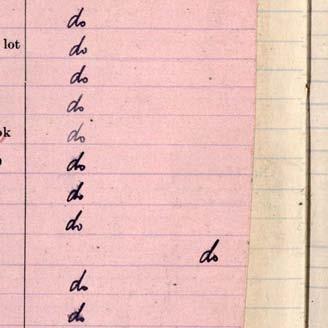 do
lot do
do
do
ok do
do
do
do
do
do
do